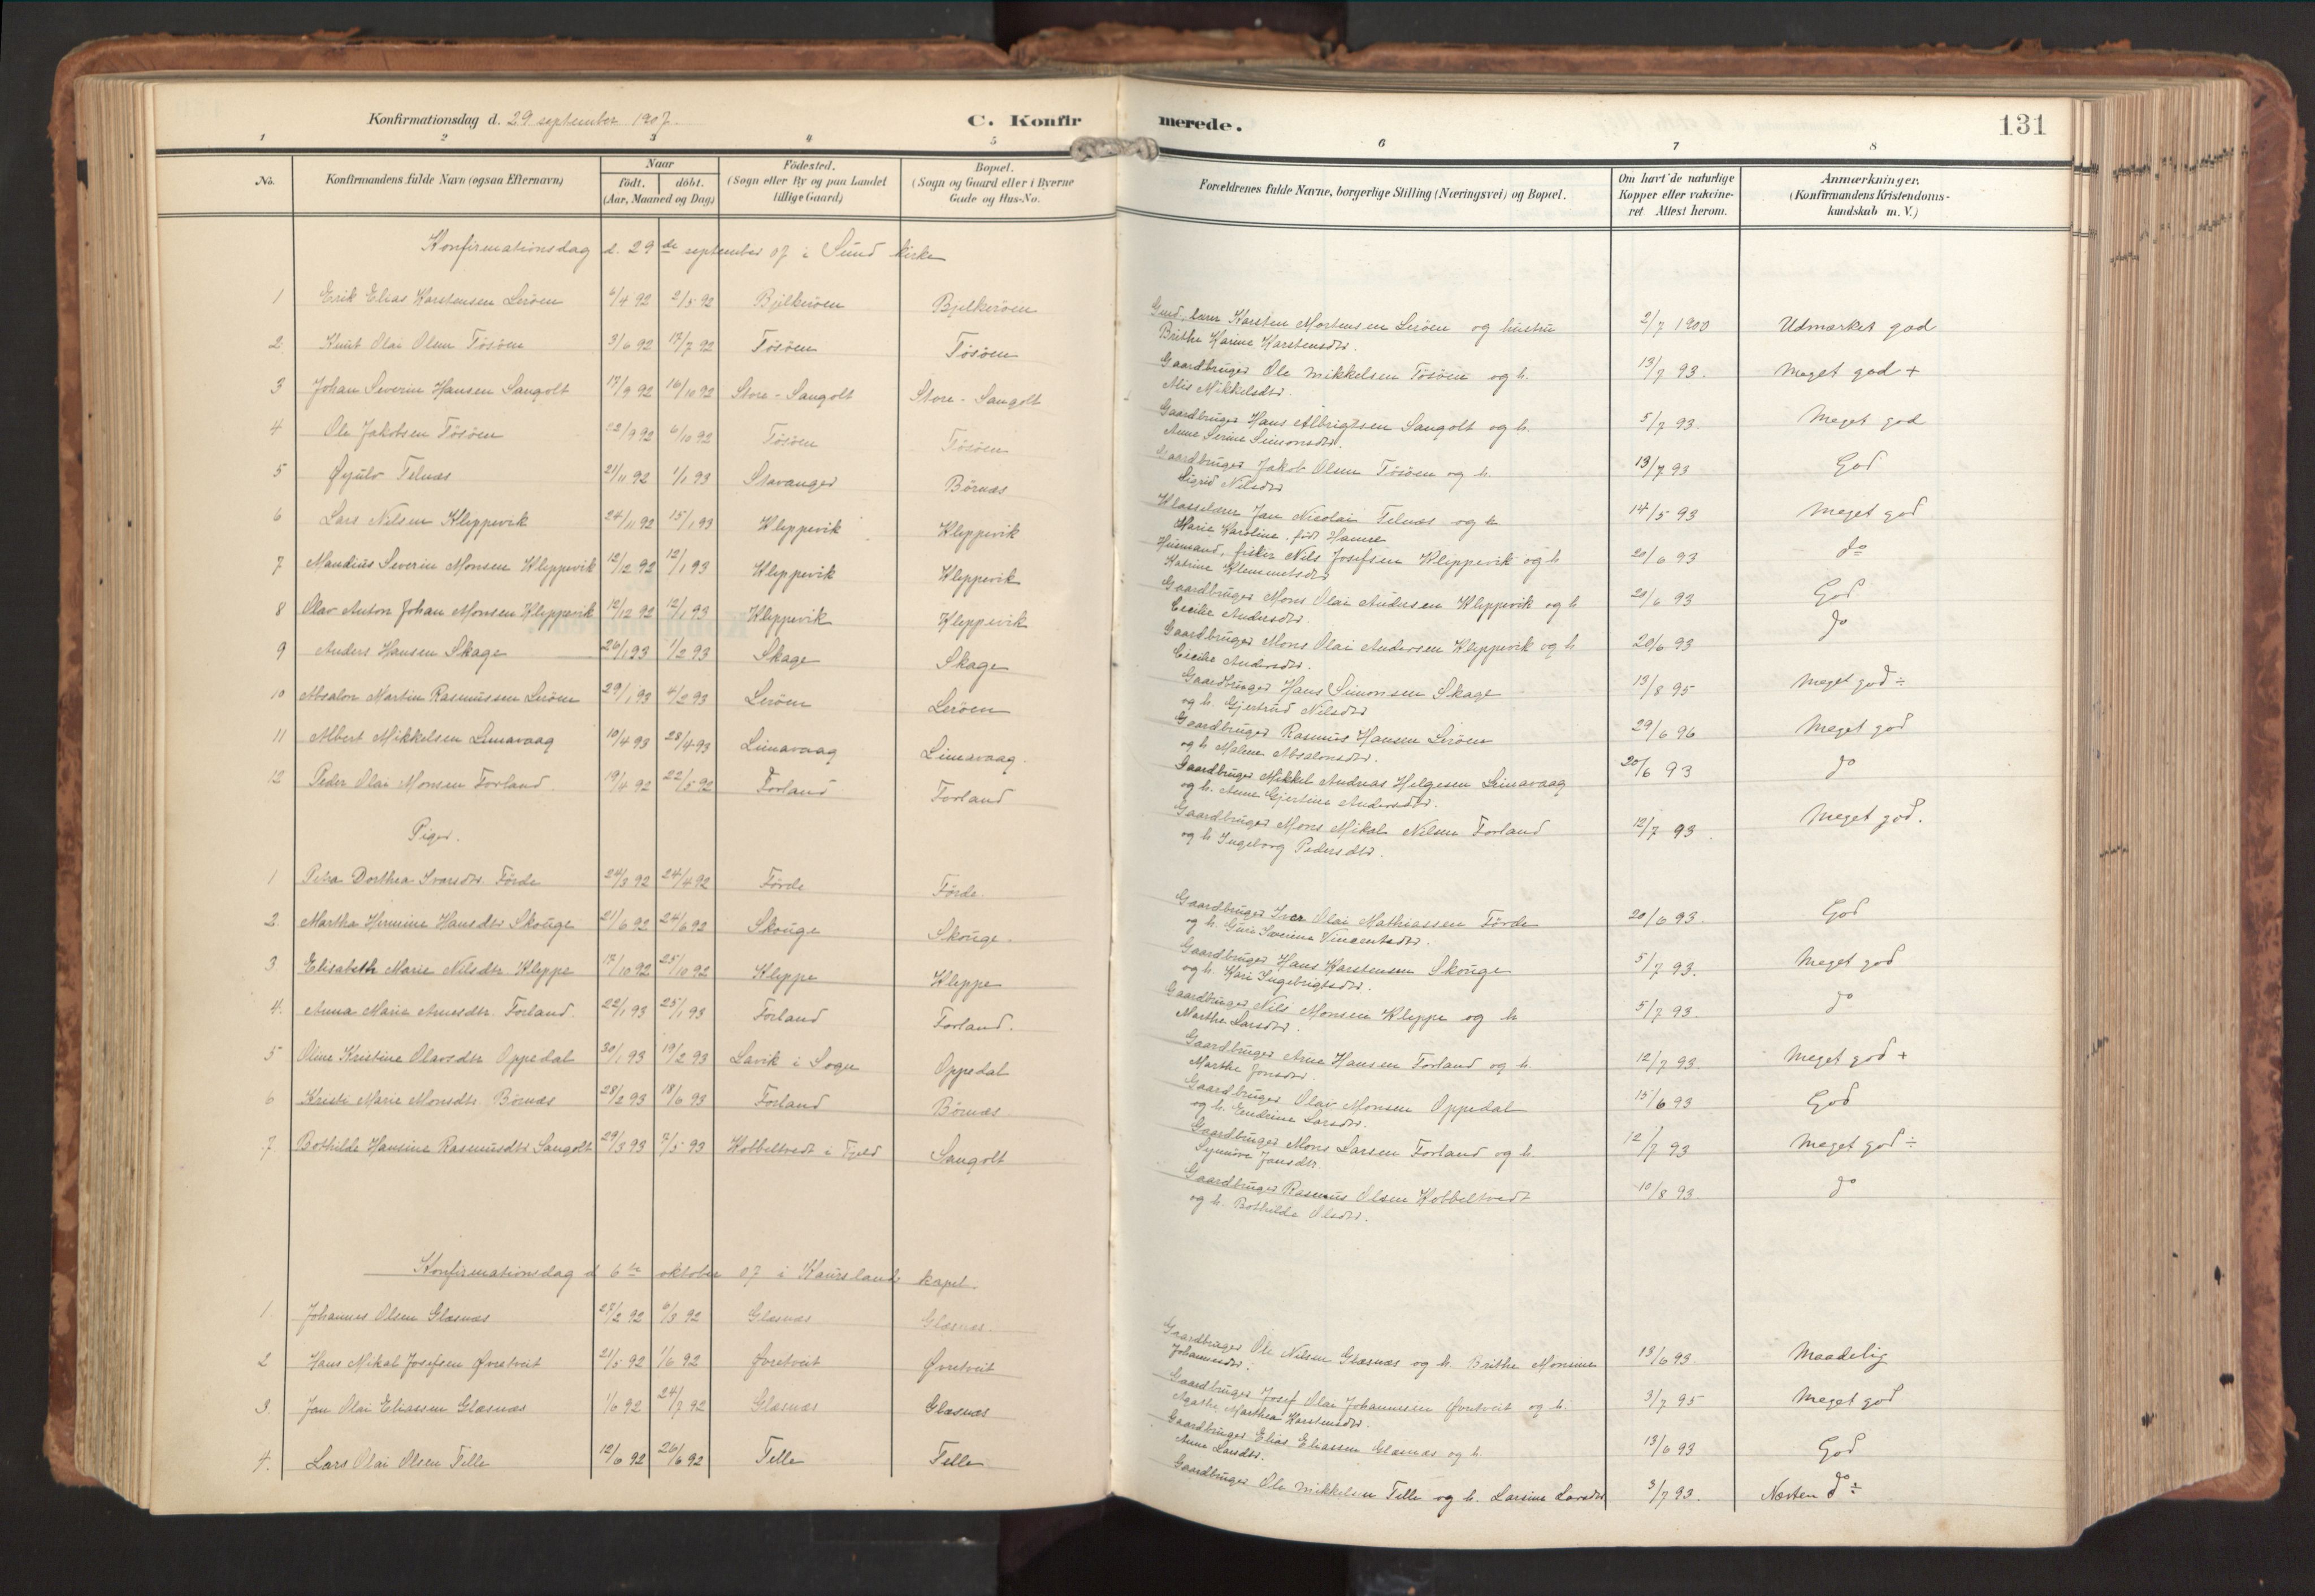 Konfirmationsdag d. 29 september 1907.
C. Konfirmerede.
131
1 2 3 4 5 6 7 8
No. Konfirmandens fulde Navn (ogsaa Efternavn) Naar født. døbt. (Aar, Maaned og Dag) Fødested. (Sogn eller By og paa Landet tillige Gaard) Bopæl. (Sogn og Gaard eller i Byerne Gade og Hus-No. Forældrenes fulde Navne, borgerlige Stilling (Næringsvei) og Bopæl. Om havt de naturlige Kopper eller vakcineret Attest herom. Anmærkninger. (Konfirmandens Kristendomskundskab m. V.)
Konfirmationsdag d. 29de september 07 i Sund kirke
1 Erik Elias Karstensen Lerøen 6/4 92 2/5 92 Bjelkerøen Bjelkerøen Karsten Mortensen Lerøen og hustru Brithe Karine Karstensdtr. 2/7 1900 Udmærket god
2. Knut Olai Olsen Tøsøen 3/6 92 17/7 92 Tøsøen Tøsøen Gaardbruger Ole Mikkelsen Tøsøen og h. Mikkelsdtr. 13/7 93. Meget god +
3 Johan Severin Hansen Sangolt 17/9 92 16/10 92 Store-Sangolt Store-Sangolt Gaardbruger Hans Albrigtsen Sangolt og h. Anne Serine Simonsdtr. 5/7 93. Meget god
4 Ole Jakobsen Tøsøen 22/9 92 6/10 92 Tøsøen Tøsøen Gaardbruger Jakob Olsen Tøsøen og h. Sigrid Nilsdtr 13/7 93 God
5 Øyulv Telnæs 21/11 92 1/1 93 Stavanger Børnæs Klasselærer Jan Nicolai Telnæs og h. Marie Karoline, født Hamre 14/5 93 Meget god
6 Lars Nilsen Kleppevik 24/11 92 15/1 93 Kleppevik Kleppevik Husmand, fisker Nils Josefsen Kleppevik og h Katrine Klemmetsdtr 20/6 93 do
7 Mandius Severin Monsen Kleppevik 12/12 92 12/1 93 Kleppevik Kleppevik Gaardbruger Mons Olai Andersen Kleppevik og h Cecilie Andersdtr. 20/6 93 God
8 Olav Anton Johan Monsen Kleppevik 12/12 92 12/1 93 Kleppevik Kleppevik Gaardbruger Mons Olai Andersen Kleppevik og h Cecilie Andersdtr. 20/6 93 do
9 Anders Hansen Skage 26/1 93 1/2 93 Skage Skage Gaardbruger Hans Simonsen Skage og h. Gjertrud Nilsdtr 13/8 95 Meget god ÷
10 Absalon Martin Rasmussen Lerøen 29/1 93 4/2 93 Lerøen Lerøen Gaardbruger Rasmus Hansen Lerøen og h Malene Absalonsdtr. 29/6 96 Meget god
11 Albert Mikkelsen Limavaag 10/4 93 28/4 93 Limavaag Limavaag. Gaardbruger Mikkel Andreas Helgesen Limavaag og h. Anne Gjertine Andersdtr. 20/6 93 do
12 Peder Olai Monsen Forland. 19/4 92 22/5 92 Forland Forland Gaardbruger Mons Mikal Nilsen Forland og h Ingeborg Pedersdtr. 12/7 93. Meget god.
Piger.
1 Petra Dorthea Ivarsdtr. Førde 24/3 92 24/4 92 Førde Førde Gaardbruger Iver Olai Mathiassen Førde og h. Guri Severine Vincentsdtr. 20/6 93. God
2. Martha Hermine Hansdtr Skouge 21/6 92 24/6 92 Skouge Skouge. Gaardbruger Hans Karstensen Skouge og h. Kari Ingebrigtsdtr. 5/7 93. Meget god
3. Elisabeth Marie Nilsdtr Kleppe 17/10 92 25/10 92 Kleppe Kleppe Gaardbruger Nils Monsen Kleppe og h Marthe Larsdtr. 5/7 93. do
4. Anna Marie Arnesdtr. Forland. 22/1 93 25/1 93 Forland Forland. Gaardbruger Arne Hansen Forland og h. Marthe Jonsdtr. 12/7 93. Meget god +
5 Oline Kristine Olavsdtr Oppedal 30/1 93 19/2 93 Lavik i Sogn Oppedal Gaardbruger Olav Monsen Oppedal og h. Endrine Larsdtr. 15/6 93 God
6 Kristi Marie Monsdtr. Børnæs 28/2 93 18/6 93 Forland Børnæs Gaardbruger Mons Larsen Forland og h. Synnøve Jansdtr. 12/7 93 Meget god ÷
7. Bothilde Hansine Rasmusdtr Sangolt 29/3 93 7/5 93 Kobbeltvedt i Fjeld Sangolt Gaardbruger Rasmus Olsen Kobbeltvedt og h. Bothilde Olsdtr. 10/8 93. do
Konfirmationsdag d 6te oktober 07 i Kausland kapel.
1. Johannes Olsen Glæsnæs 27/2 92 6/3 92 Glæsnæs Glæsnæs. Gaardbruger Ole Nilsen Glæsnæs og h. Brithe Monsine Johannesdtr. 13/6 93. Maadelig
2 Hans Mikal Josefsen Øvretveit 21/5 92 1/6 92 Øvretveit Øvretveit Gaardbruger Josef Olai Johannesen Øvretveit og h. Agathe Marthea Karstensdtr. 3/7 95 Meget god
3 Jan Olai Eliassen Glæsnæs 1/6 92 24/7 92 Glæsnæs Glæsnæs Gaardbruger Elias Eliassen Glæsnæs og h. Anne Larsdtr. 13/6 93 God
4. Lars Olai Olsen Telle 12/6 92 26/6 92 Telle Telle Gaardbruger Ole Mikkelsen Telle og h. Larsine Larsdtr 3/7 93. Næsten do ÷